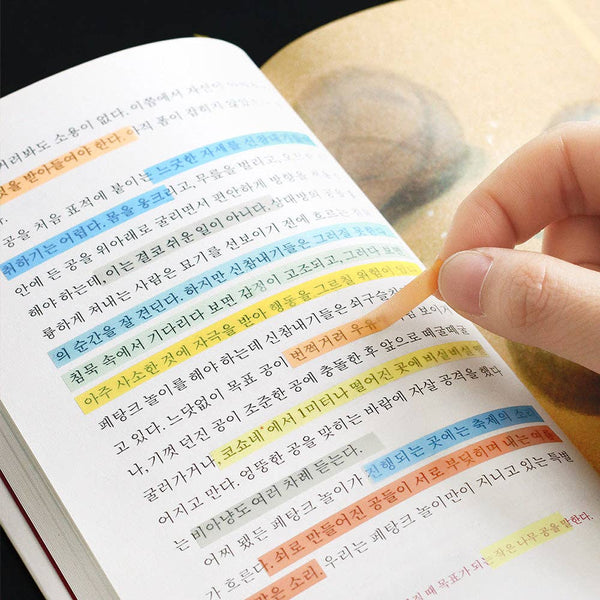 도 소용이 없다. 이쯤에서 자신이
것을 받아들여야 한다. 아직 폼이 잡히지 않았
공을 처음 표적에 붙이는 느긋한 자세를 신참내기
취하기는 어렵다. 몸을 웅크리고, 무릎을 벌리고,
안에 든 공을 위아래로 굴리면서 편안하게 방향을
해야 하는데, 이는 결코 쉬운 일이 아니다. 상대방의 공이
륭하게 쳐내는 사람은 묘기를 선보이기 전에 흐르는
의 순간을 잘 견딘다. 하지만 신참내기들은 그러질 못한다
침묵 속에서 기다리다 보면 감정이 고조되고, 그러다 보면
아주 사소한 것에 자극을 받아 행동을 그르칠 위험이
페탕크 놀이를 해야 하는데 신참내기들은 쇠구슬
고 있다. 느닷없이 목표 공이 번쩍거려 우유 보이
나, 기껏 던진 공이 조준한 공에 충돌한 후 앞으로 떼굴떼굴
굴러가거나, 코쇼네*에서 1미터나 떨어진 곳에 비실비실
어지고 만다. 엉뚱한 공을 맞히는 바람에 자살 공격을 했다
는 비아냥도 여러 차례 듣는다.
어찌 됐든 페탕크 놀이가 진행되는 곳에는 축제의 소리
가 흐른다. 쇠로 만들어진 공들이 서로 부딪히며 내는
같은 소리. 우리는 페탕크 놀이만이 지니고 있는 특별
때 목표가 되는 작은 나무 공을 말한다.